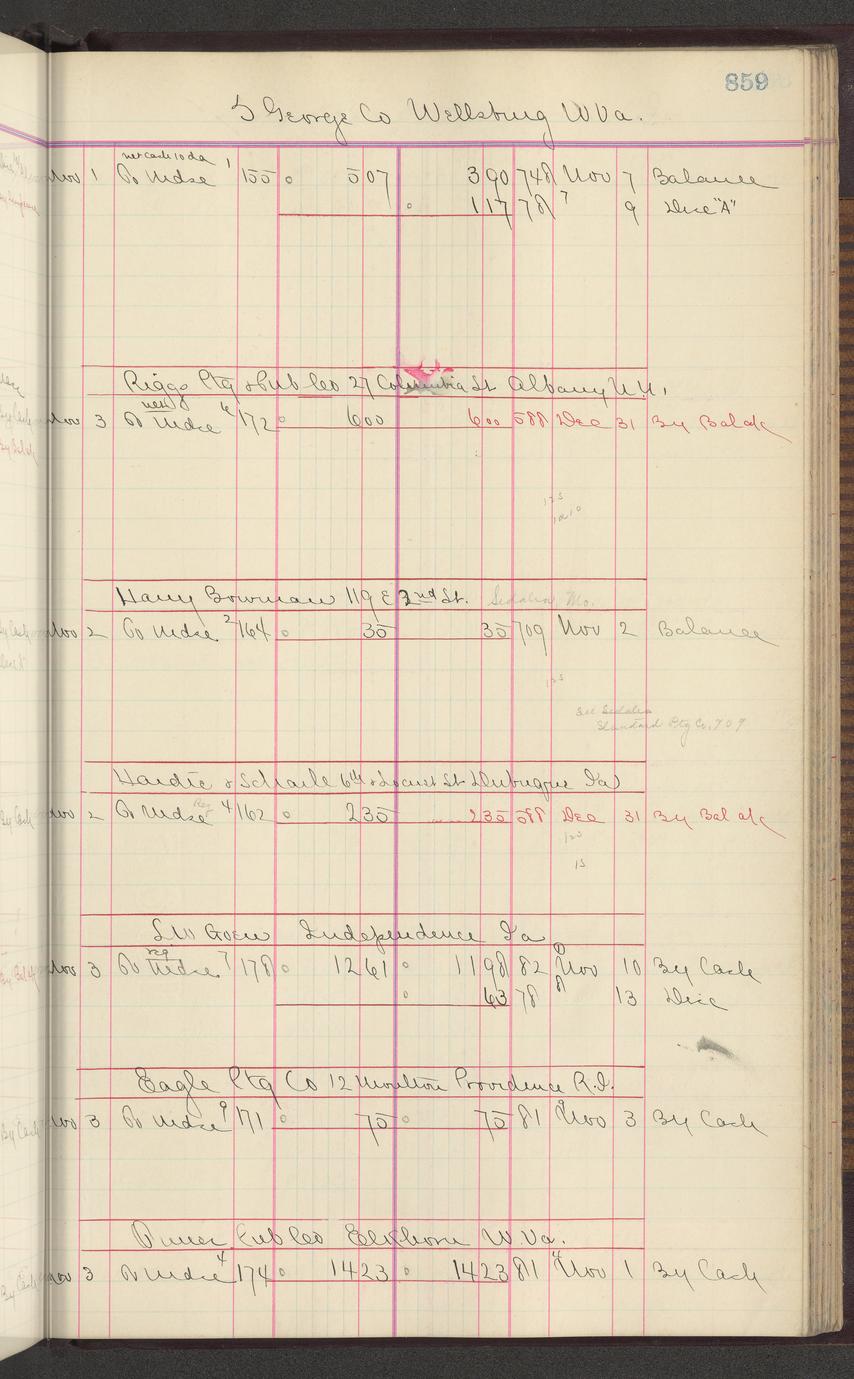 859
S George Co Wellsburg W Va.
net cash 10 da
Nov 1 To Mdse 1 155 507 390 748 Nov 7 Balance
117 78 7 9 Disc "A"
Riggs Ptg & Pub Co 27 Columbia St Albany N.Y.
Nov 3 To Mdse 172 600 600 588 Dec 31 By Bal a/c
Harry Bowman 119 E 2nd St. Sedalia Mo.
Nov 2 To Mdse 2 164 35 35 709 Nov 2 Balance
See Sedalia
Standard Ptg Co. 709
Hardie & Scharle 6th & Locust St Dubuque Ia
Nov 2 To Mdse Reg 4 162 235 235 588 Dec 31 By Bal a/c
15
L W Goen Independence Ia
reg
Nov 3 To Mdse 7 178 1261 1198 82 Nov 10 By Cash
63 78 8 13 Disc
Eagle Ptg Co 12 Moulton Providence R.I.
Nov 3 To Mdse 9 171 75 75 81 9 Nov 3 By Cash
Pub Co Elkhorn W Va.
Nov 3 To Mdse 4 174 1423 1423 81 4 Nov 1 By Cash